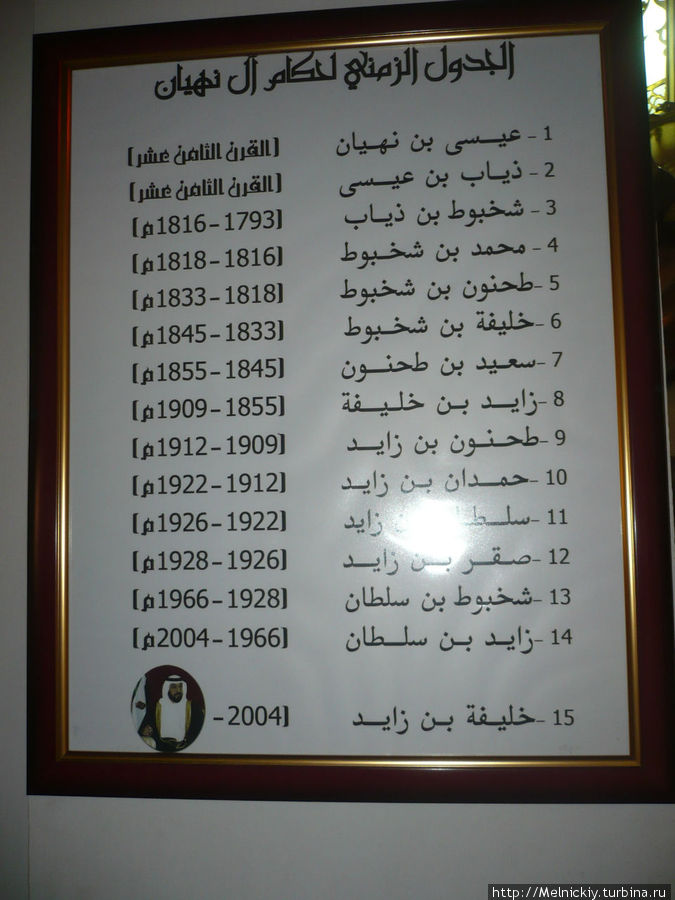 الجدول الزمني لحكام آل نهيان
1 - عيسى بن نهيان (القرن الثامن عشر)
2 - ذياب بن عيسى (القرن الثامن عشر)
3 - شخبوط بن ذياب (1793-1816م)
4 - محمد بن شخبوط (1816-1818م)
5 - طحنون بن شخبوط (1818-1833م)
6 - خليفة بن شخبوط (1833-1845م)
7 - سعيد بن طحنون (1845-1855م)
8 - زايد بن خليفة (1855-1909م)
9 - طحنون بن زايد (1909-1912م)
10 - حمدان بن زايد (1912-1922م)
11 - زايد (1922-1926م)
12 - صقر بن زايد (1926-1928م)
13 - شخبوط بن سلطان (1928-1966م)
14 - زايد بن سلطان (1966-2004م)
15 - خليفة بن زايد (2004-
http://Melnickiy.turbina.ru